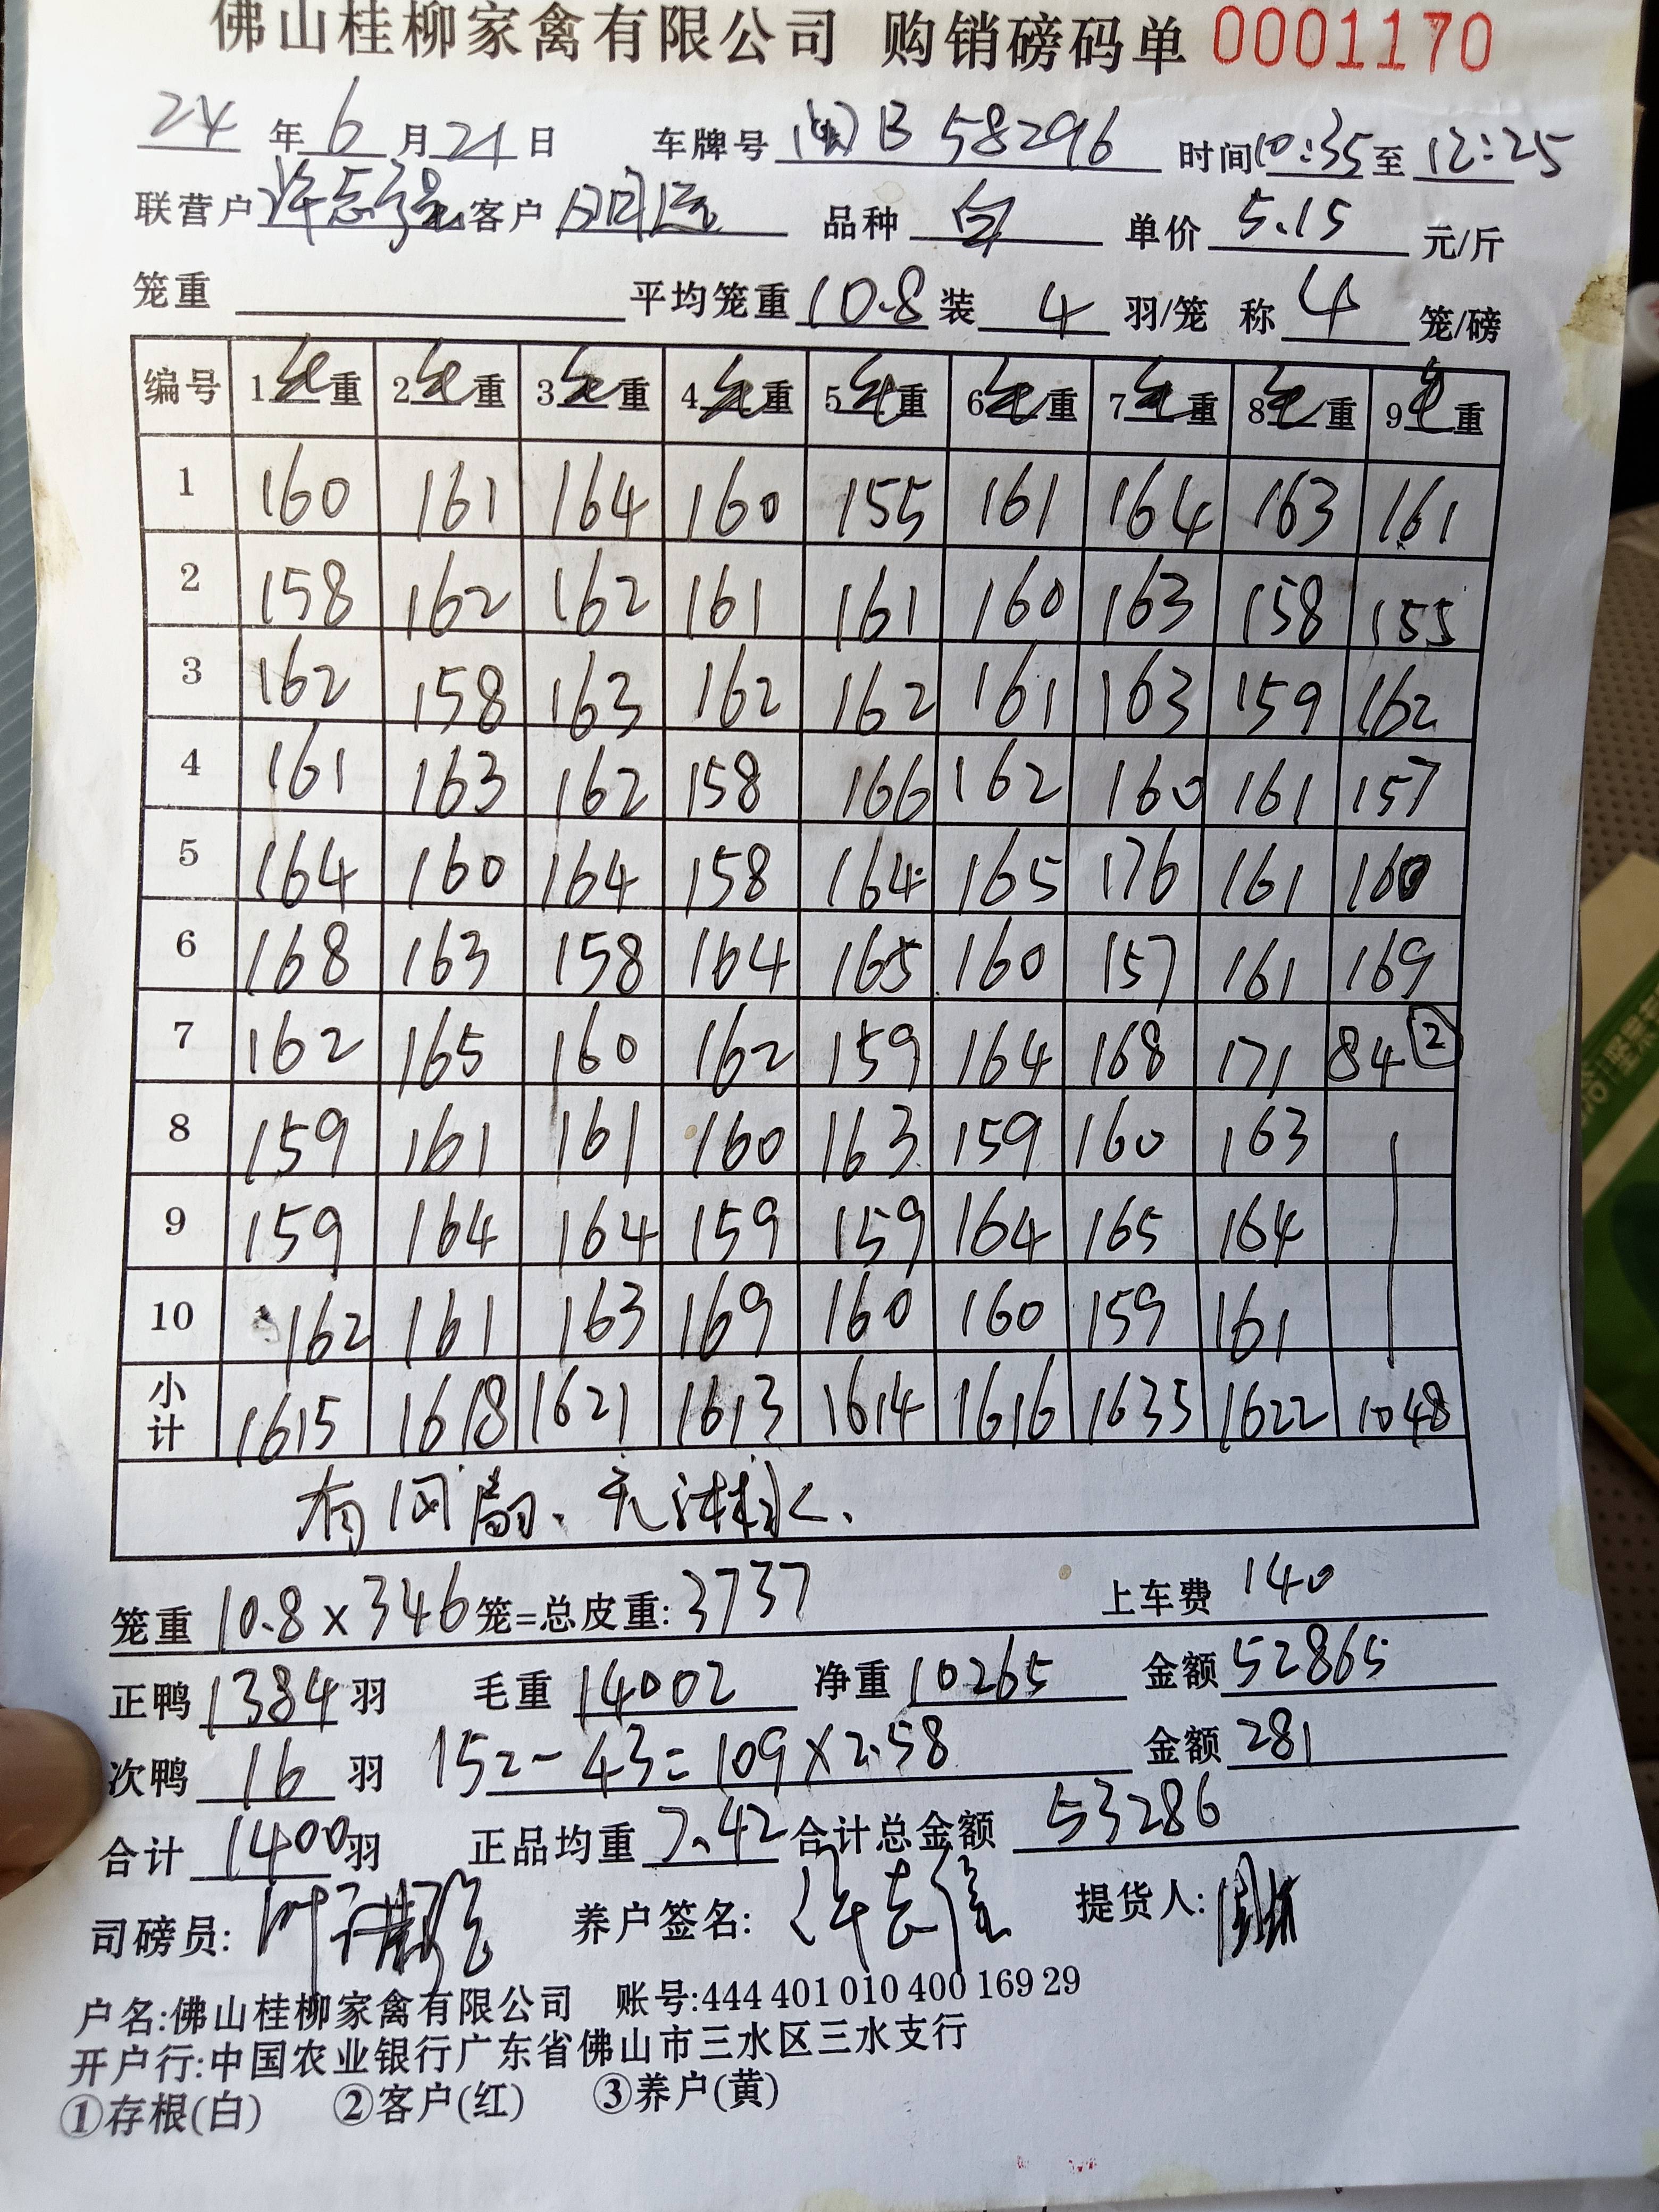 佛山桂柳家禽有限公司 购销磅码单 0001170
24年6月21日 车牌号 闽B 58296 时间10:35至12:25
联营户 许志强 客户 品种 白 单价 5.15 元/斤
笼重 平均笼重 10.8 装 4 羽/笼 称 4 笼/磅
编号 1毛重 2毛重 3毛重 4毛重 5毛重 6毛重 7毛重 8毛重 9毛重
1 160 161 164 160 155 161 164 163 161
2 158 162 162 161 161 160 163 158 155
3 162 158 163 162 162 161 163 159 162
4 161 163 162 158 166 162 160 161 157
5 164 160 164 158 164 165 176 161 160
6 168 163 158 164 165 160 157 161 169
7 162 165 160 162 159 164 168 171 84 ②
8 159 161 161 160 163 159 160 163
9 159 164 164 159 159 164 165 164
10 162 161 163 169 160 160 159 161
小计 1615 1618 1621 1613 1614 1616 1635 1622 1048
有风扇、无淋水、
笼重 10.8×346笼=总皮重:3737 上车费 140
正鸭 1384 羽 毛重 14002 净重 10265 金额 52865
次鸭 16 羽 152-43=109×2.58 金额 281
合计 1400羽 正品均重 7.42 合计总金额 53286
司磅员: 养户签名: 许志强 提货人:
户名:佛山桂柳家禽有限公司 账号:444 401 010 400 169 29
开户行:中国农业银行广东省佛山市三水区三水支行
①存根(白) ②客户(红) ③养户(黄)